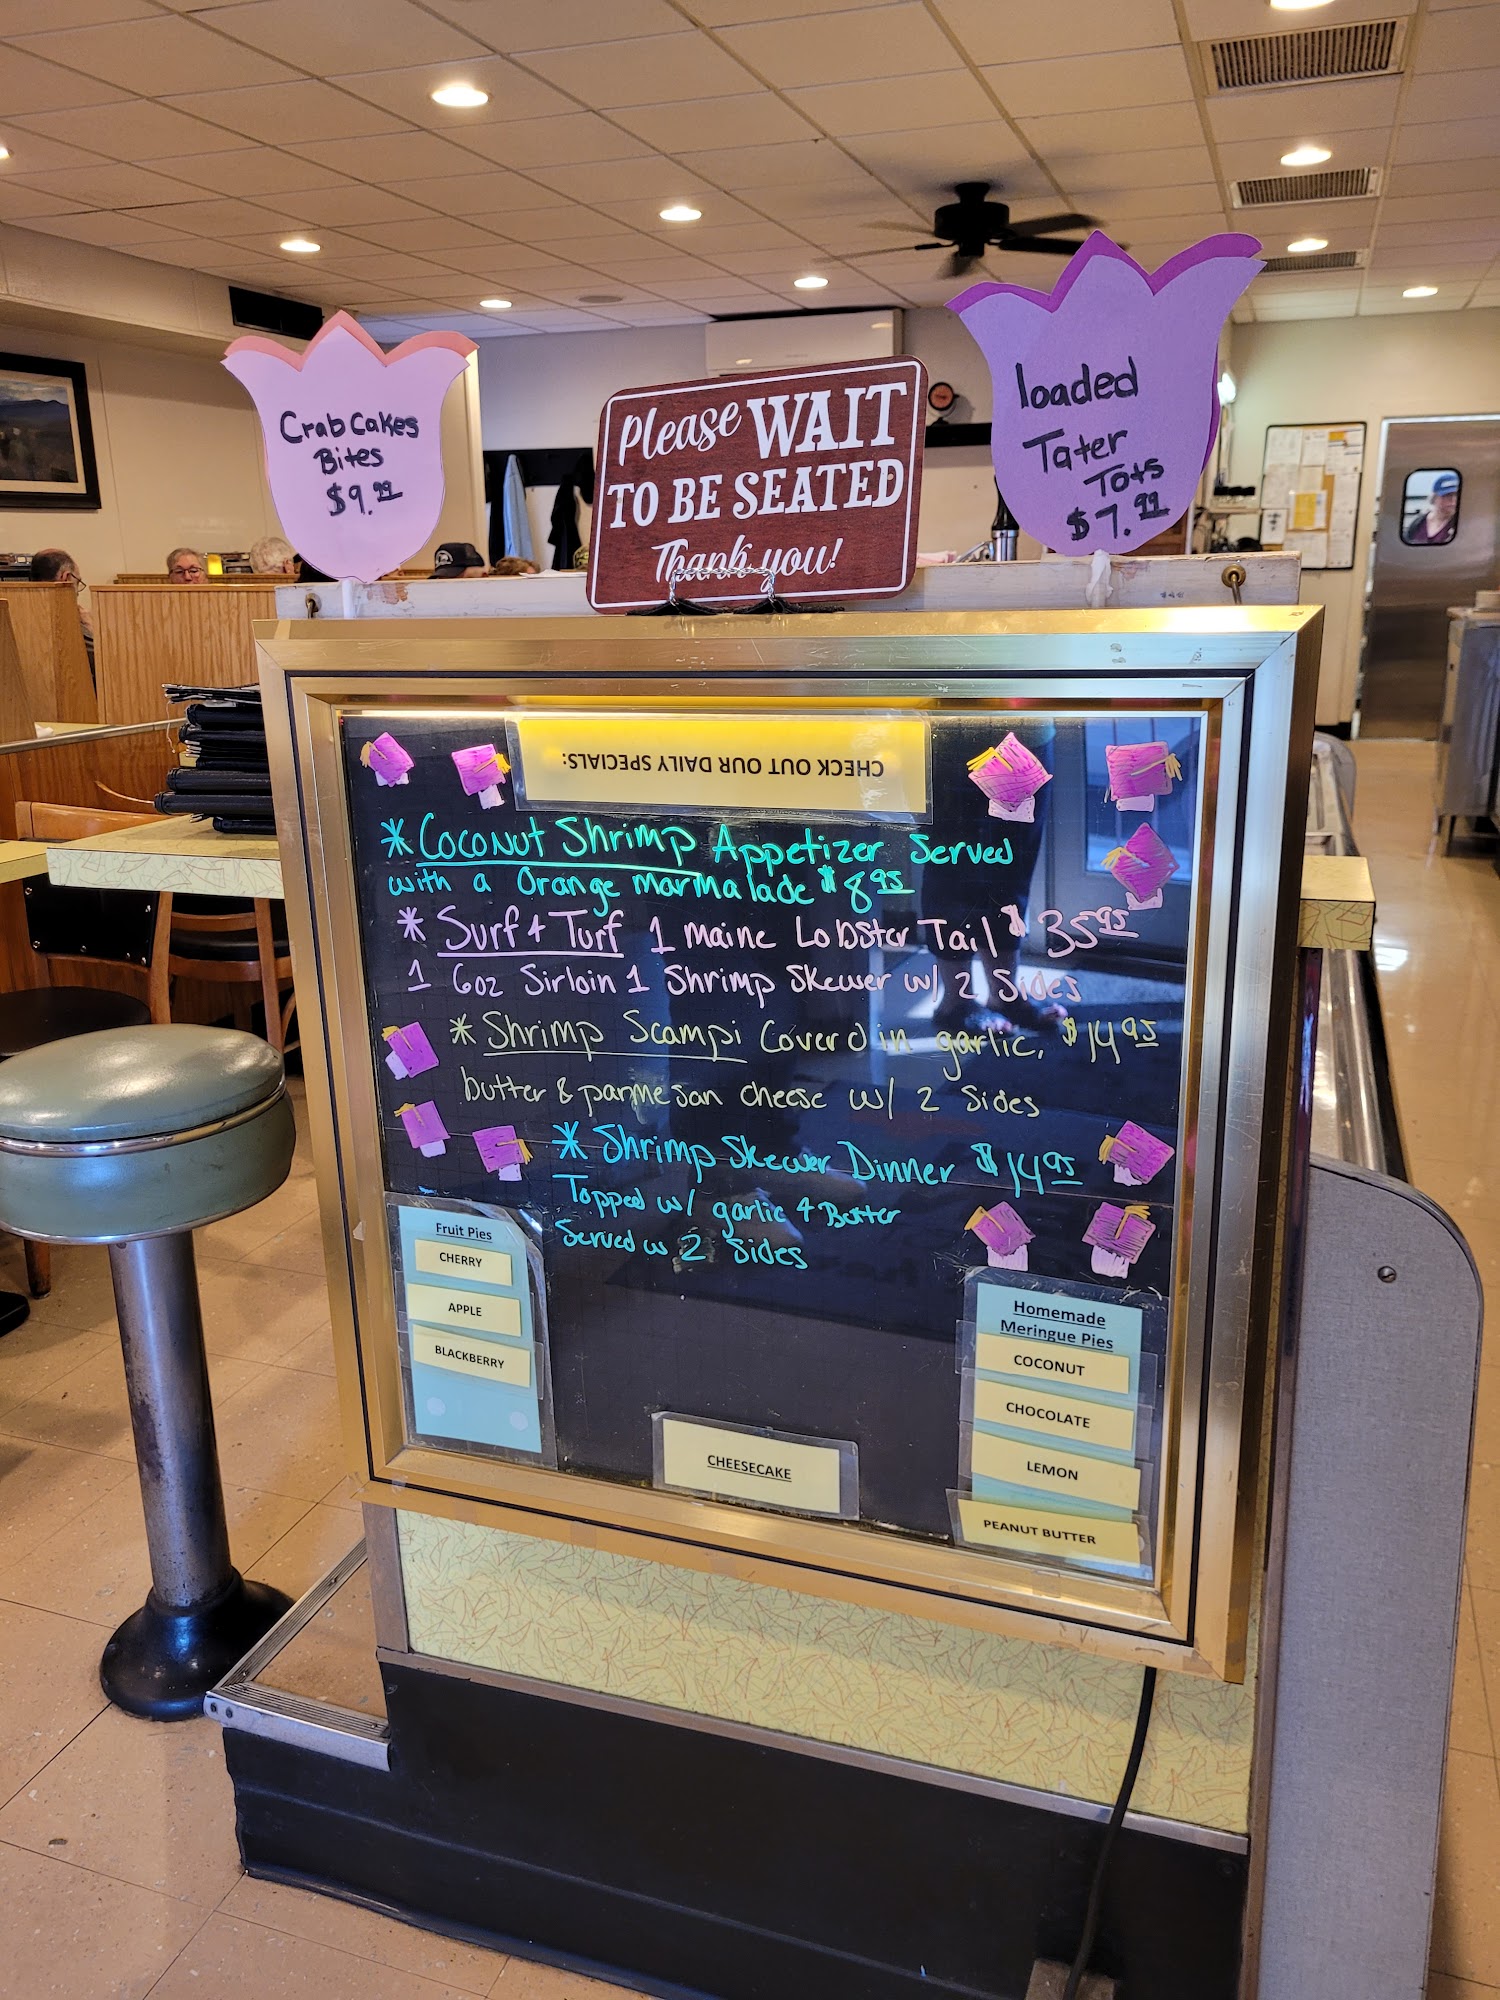 Crab Cakes
Bites
$9.99
Please WAIT
TO BE SEATED
Thank you!
loaded
Tater
Tots
$7.99
CHECK OUT OUR DAILY SPECIALS:
* Coconut Shrimp Appetizer Served
with a Orange Marmalade $8.95
* Surf + Turf 1 Maine Lobster Tail $35.95
1 6oz Sirloin 1 Shrimp Skewer w/ 2 Sides
* Shrimp Scampi Covered in garlic, $14.95
butter & parmesan cheese w/ 2 Sides
* Shrimp Skewer Dinner $14.95
Topped w/ garlic + Butter
Served w 2 Sides
Fruit Pies
CHERRY
APPLE
BLACKBERRY
CHEESECAKE
Homemade
Meringue Pies
COCONUT
CHOCOLATE
LEMON
PEANUT BUTTER